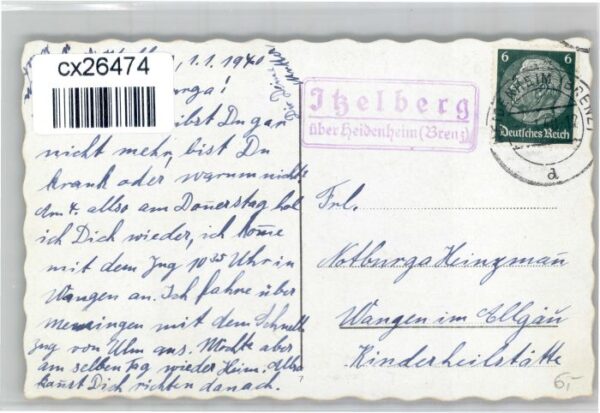 1.1.1940
cx26474
ibst Du gar
nicht mehr, bist Du
krank oder warum nicht?
Am 4. allso am Donerstag hol
ich Dich wieder, ich kome
mit dem Zug 10 35 Uhr in
Wangen an. Ich fahre über
Memingen mit dem Schnell
zug von Ulm aus. Möchte aber
am selben tag wieder Heim. Allso
kanst Dich richten danach.
Itzelberg
über Heidenheim (Brenz)
6 6
Deutsches Reich
a
Frl.
Notburga Heinzman
Wangen im Allgäu
Kinderheilstätte
6,-